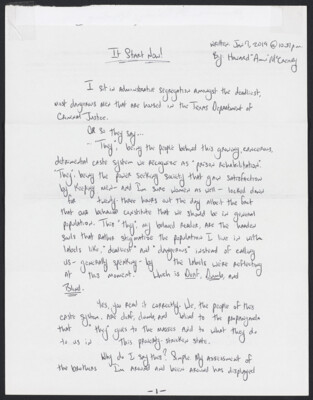 written Jan 7, 2019 @ 10:37pm
It Start Now!
By: Howard "Amir" McCready
I sit in administrative segregation amongst the deadliest,
most dangerous men that are housed in the Texas Department of
Criminal Justice.
Or so they say...
"They", being the people behind this growing, cancerous,
detrimental caste system we recognize as "prison rehabilitation".
"They", being the power seeking society that gain satisfaction
by keeping men - and I'm sure women as well - locked down
for twenty-three hours out the day albeit the fact
that our behavior constitute that we should be in general
population. This "they", my beloved reader, are the
that rather stigmatize the population I live in with
labels like, "deadliest" and "dangerous" instead of calling
us - generally speaking - by the labels we're reflecting
at this moment. Which is Deaf, Dumb, and
Blind.
Yes, you read it correctly. We, the people of this
caste system, are deaf, dumb, and blind to the propaganda
that "they" give to the masses and to what they do
to us in this poverty-stricken state.
Why do I say this? Simple. My assessment of
the brothers I'm around and been around has displayed
- 1 -